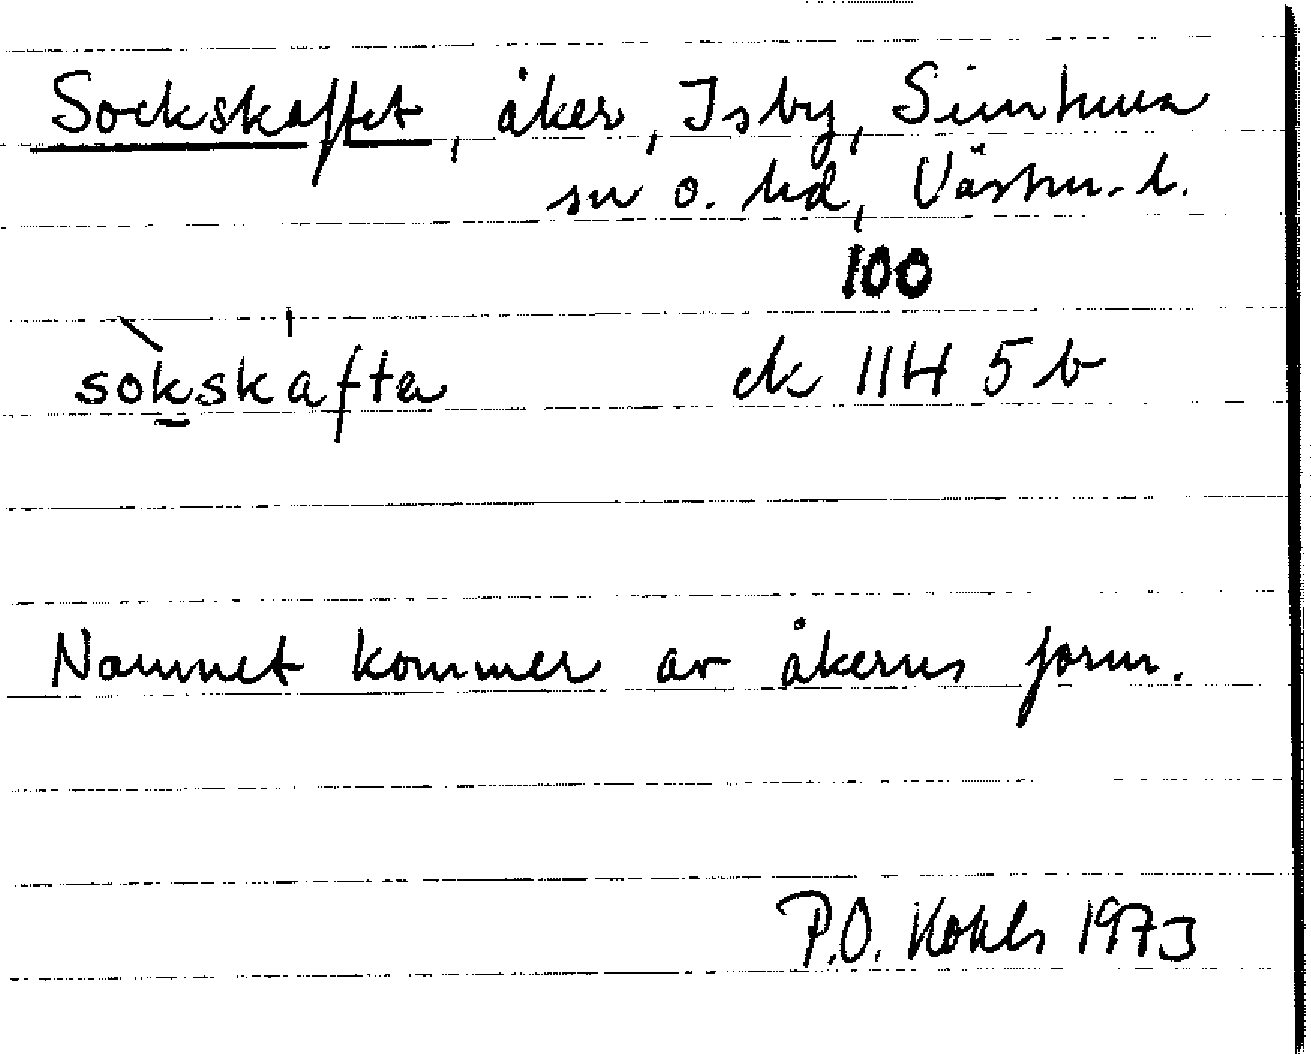 Sockskaftet, åker, Isby, Simtuna
sn o. hd, Västm. l.
100
sòkskáfta ek 11H 5b
Namnet kommer av åkerns form.
P.O. Kohls 1973